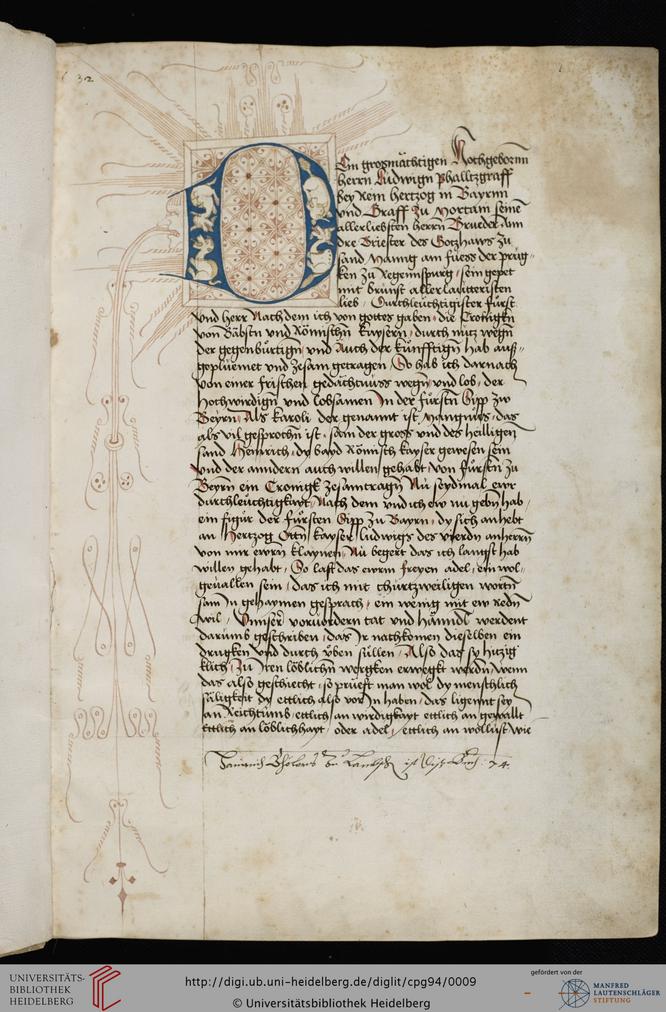 32
Em grosmächtigen Hochgebornn
herrn Ludwign phalltzgraff
bey Rein hertzog in Bayrnn
vnd Graff zu Mortani seine
allerliebsten herrn Brueder ann
dre Priester des Gotzhaws zu
sand Manng am fuess der prug-
ken zu Regennspurg, sein gepet
mit brunst aller lauteristen
lieb, Durchleuchtigister fürst
vnd herr Nach dem ich von gottes gaben, die Cronigkn
von Bäbstn vnd Römischn kaysern, durch nutz wegn
der gegenburtign vnd Auch der künfftign hab auß-
gepluemet vnd zesam getragen, So hab ich darnach
von einer frischen gedächtnuss wegn vnd lob, der
Hochwirdign vnd lobsamen In der fürstn Sipp zw
Beyrn, Als karoli der genannt ist Mangnus, das
als vil gesprochn ist, sam der gross vnd des halligen
sand Heinrich, dy bayd Römisch kayser gewesen sein
vnd der anndern auch willen gehabt von fürstn zu
Beyrn ein Cronigk zesamtragn Nu seydmal ewr
durchleuchtigkayt, Nach dem vnd ich ew nu gebn hab,
ein figur der fürsten Sipp zu Bayrn, dy sich anhebt
an Hertzog Ottn kayser Ludwigs des vierdn anherrn
von mir ewrn klaynen, Nu begert das ich langst hab
willen gehabt, So last das ewrm freyen adel, ein wol-
geuallen sein, das ich mit churtzweiligen wortn
sam In gehaymen gesprach, ein wenig mit ew redn
wil, Vnnser voruordern tat vnd hänndl werdent
darumb geschriben, das Ir nachkomen dieselben ein
drugken vnd durch vben sullen, Also das sy hitzig-
klich, Zu Iren löblichn wergken erwegkt werdn wenn
das also geschiecht, so prüeft man wol dy menschlich
säligkeit dy ettlich also vor In haben, das ligennt sey
an Reichtumb, ettlich an wirdigkayt ettlich an gewallt
ettlich an löblichhayt, oder adel, ettlich an wollust wie
UNIVERSITÄTS-
BIBLIOTHEK
HEIDELBERG
http://digi.ub.uni-heidelberg.de/diglit/cpg94/0009
© Universitätsbibliothek Heidelberg
gefördert von der
MANFRED
LAUTENSCHLÄGER
STIFTUNG